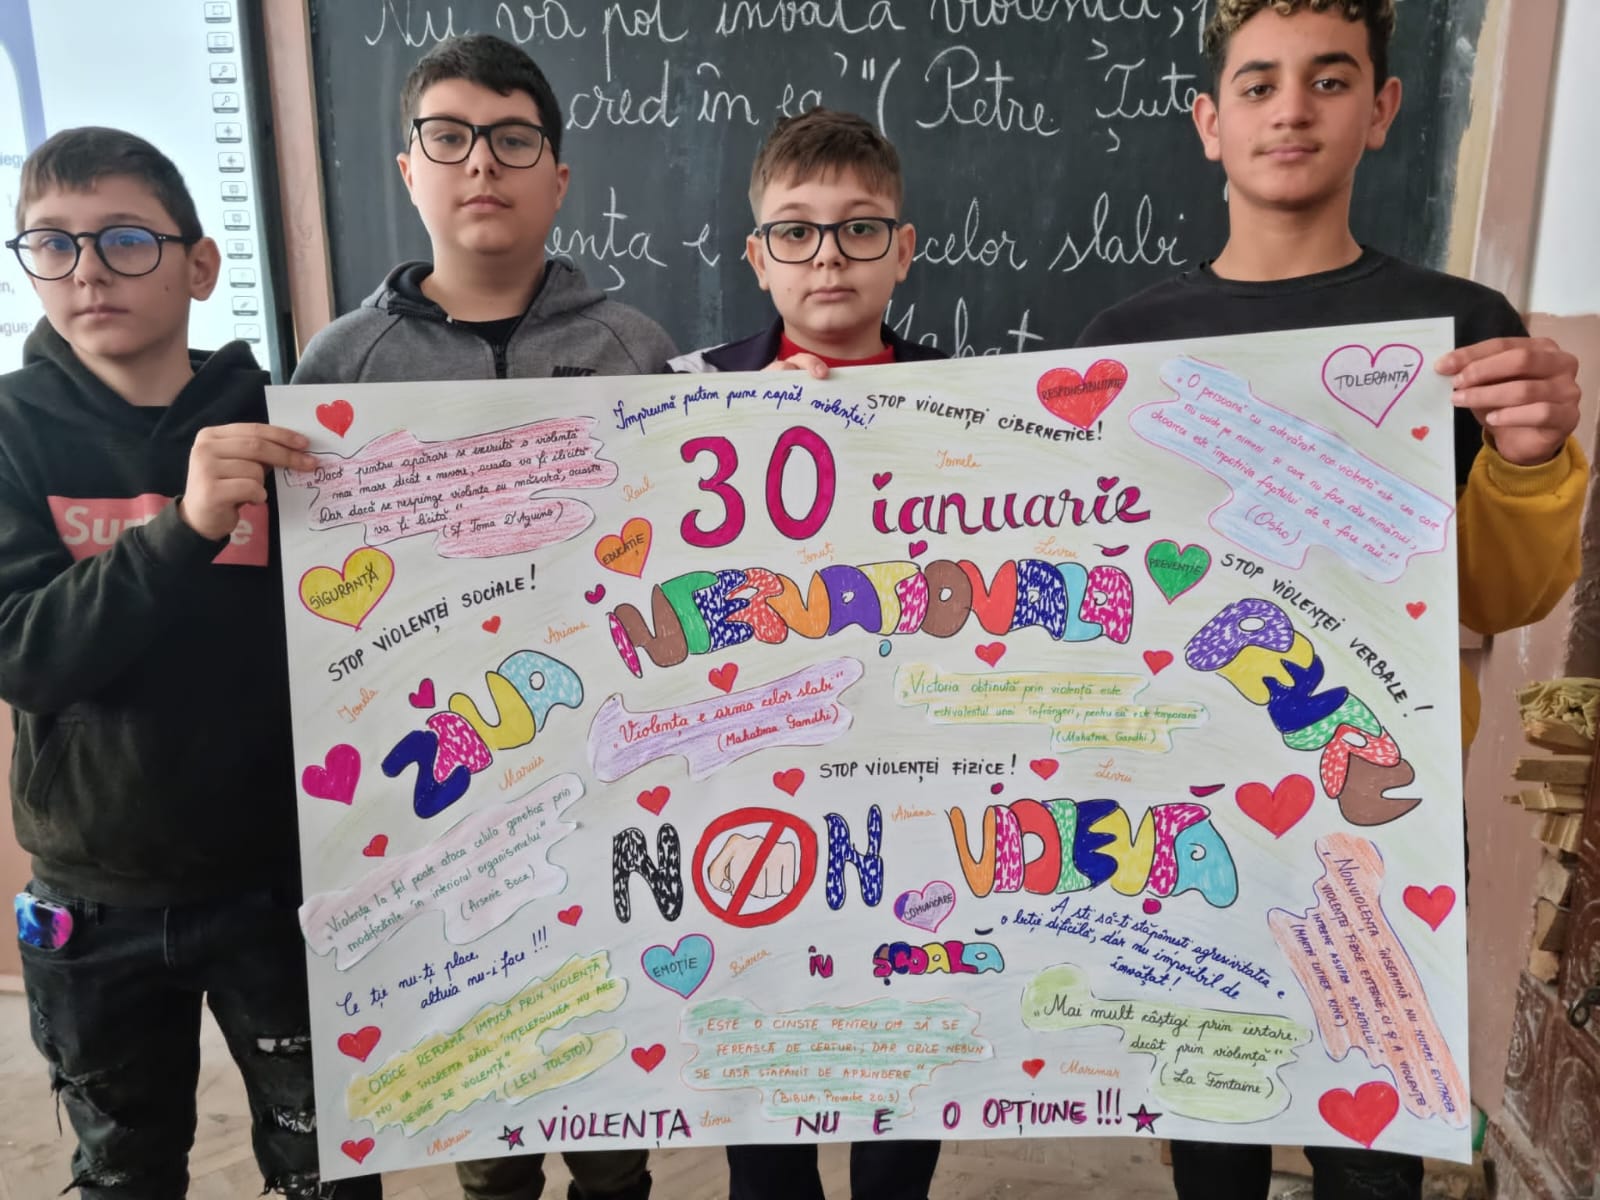 Nu vă pot învăța violența,
cred în ea" (Petre Țute
ența e
celor slabi
NIKE
Împreună putem pune capăt violenței!
STOP VIOLENȚEI CIBERNETICE!
RESPONSABILITATE
TOLERANȚĂ
„Dacă pentru apărare se exercită o violență
mai mare decât e nevoie, aceasta va fi ilicită.
Dar dacă se respinge violența cu măsură, aceasta
va fi licită."
(Sf. Toma D'Aquino)
„O persoană cu adevărat non violentă este cea care
nu ucide pe nimeni și care nu face rău nimănui,
deoarece este împotriva faptului de a face rău..."
(Osho)
30 ianuarie
Raul
Ionela
EDUCAȚIE
Ionuț
Liviu
PREVENȚIE
SIGURANȚĂ
STOP VIOLENȚEI SOCIALE!
STOP VIOLENȚEI VERBALE!
Ariana
ZIUA
INTERNAȚIONALĂ
PENTRU
Marius
„Violența e arma celor slabi"
(Mahatma Gandhi)
„Victoria obținută prin violență este
echivalentul unei înfrângeri, pentru că este temporară"
(Mahatma Gandhi)
STOP VIOLENȚEI FIZICE!
Liviu
Ariana
NON VIOLENȚĂ
„Violența la fel poate ataca celula genetică prin
modificările în interiorul organismului"
(Arsenie Boca)
COMUNICARE
A ști să-ți stăpânești agresivitatea e
o lecție dificilă, dar nu imposibil de
învățat!
„NONVIOLENȚA ÎNSEAMNĂ NU NUMAI EVITAREA
VIOLENȚEI FIZICE EXTERNE, CI ȘI A VIOLENȚEI
INTERNE ASUPRA SPIRITULUI."
(MARTIN LUTHER KING)
Ce ție nu-ți place,
altuia nu-i face!!!
EMOȚIE
Bianca
ÎN ȘCOALĂ
„ORICE REFORMĂ IMPUSĂ PRIN VIOLENȚĂ
NU VA ÎNDREPTA RĂUL: ÎNȚELEPCIUNEA NU ARE
NEVOIE DE VIOLENȚĂ."
(LEV TOLSTOI)
„ESTE O CINSTE PENTRU OM SĂ SE
FEREASCĂ DE CERTURI, DAR ORICE NEBUN
SE LASĂ STĂPÂNIT DE APRINDERE"
(BIBLIA, Proverbe 20:3)
„Mai mult câștigi prin iertare,
decât prin violență"
(La Fontaine)
Marimar
Marius
Liviu
VIOLENȚA NU E O OPȚIUNE!!!